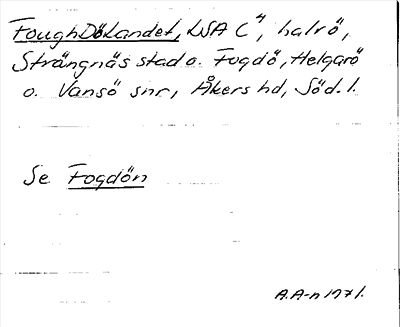 FoughDöLandet, LSA C4, halvö,
Strängnäs stad o. Fogdö, Helgarö
o. Vansö snr, Åkers hd, Söd. l.
Se Fogdön
A.A-n 1971.